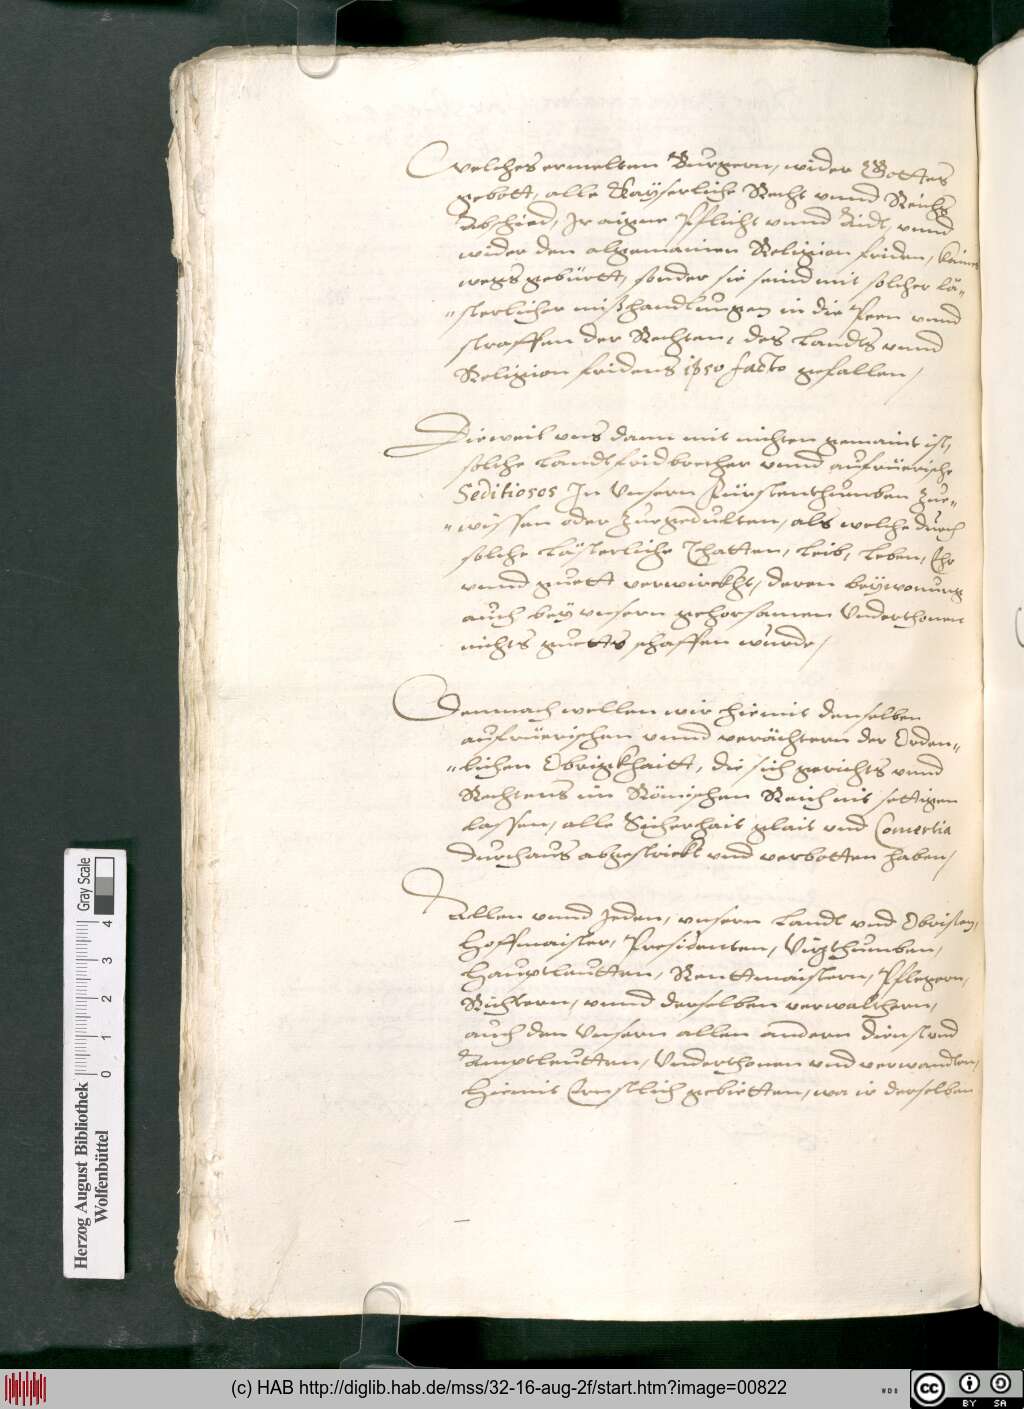 welches ermelten Burgern, wider Gottes
gebott, alle Kaÿserliche Recht vnnd Reichs
Abschied, Ir aigne Pflicht vnnd Aidt, vnnd
wider den algemainen Religion friden, kaines
wegs gebürtt, sonder sie seind mit solcher lä„
„sterlicher mißhandlungen in die Peen vnnd
straffen der Rechten, des Landts vnnd
Religion fridens ipso facto gefallen,
Dieweil vns dann mit nichten gemaint ist,
solche Landtfridbrecher vnnd aufrüerische
Seditiosos In Vnsern Fürstenthumben Zue„
„wissen oder Zuegedulten, als welche durch
solche Lästerliche Thatten, Leib, Leben, Ehr
vnnd guett verwirckht, deren beÿwonung
auch beÿ vnsern gehorsamen Vnderthonen
nichts guetts schaffen wurde,
Demnach wellen wir hiemit denselben
aufrüerischen vnnd verächtern der Orden„
„lichen Obrigkhaitt, die sich gerichts vnnd
Rechtens im Römischen Reich nit settigen
lassen, alle Sicherhait glait vnd Comertia
durchaus abgestrickt vnd verbotten haben,
Allen vnnd Jeden, vnsern Landt vnd Obristen,
Hoffmaister, Presidenten, Vizthumben,
Hauptleutten, Renttmaistern, Pflegern,
Richtern, vnnd derselben verwalthern,
auch den Vnsern allen andern dienst vnd
Amptleutten, Vnderthonen vnd verwandten,
Hiemit Ernstlich gebietten, wa ir derselben
Herzog August Bibliothek
Wolfenbüttel
Gray Scale
0 1 2 3 4
(c) HAB http://diglib.hab.de/mss/32-16-aug-2f/start.htm?image=00822
WDB
cc BY SA